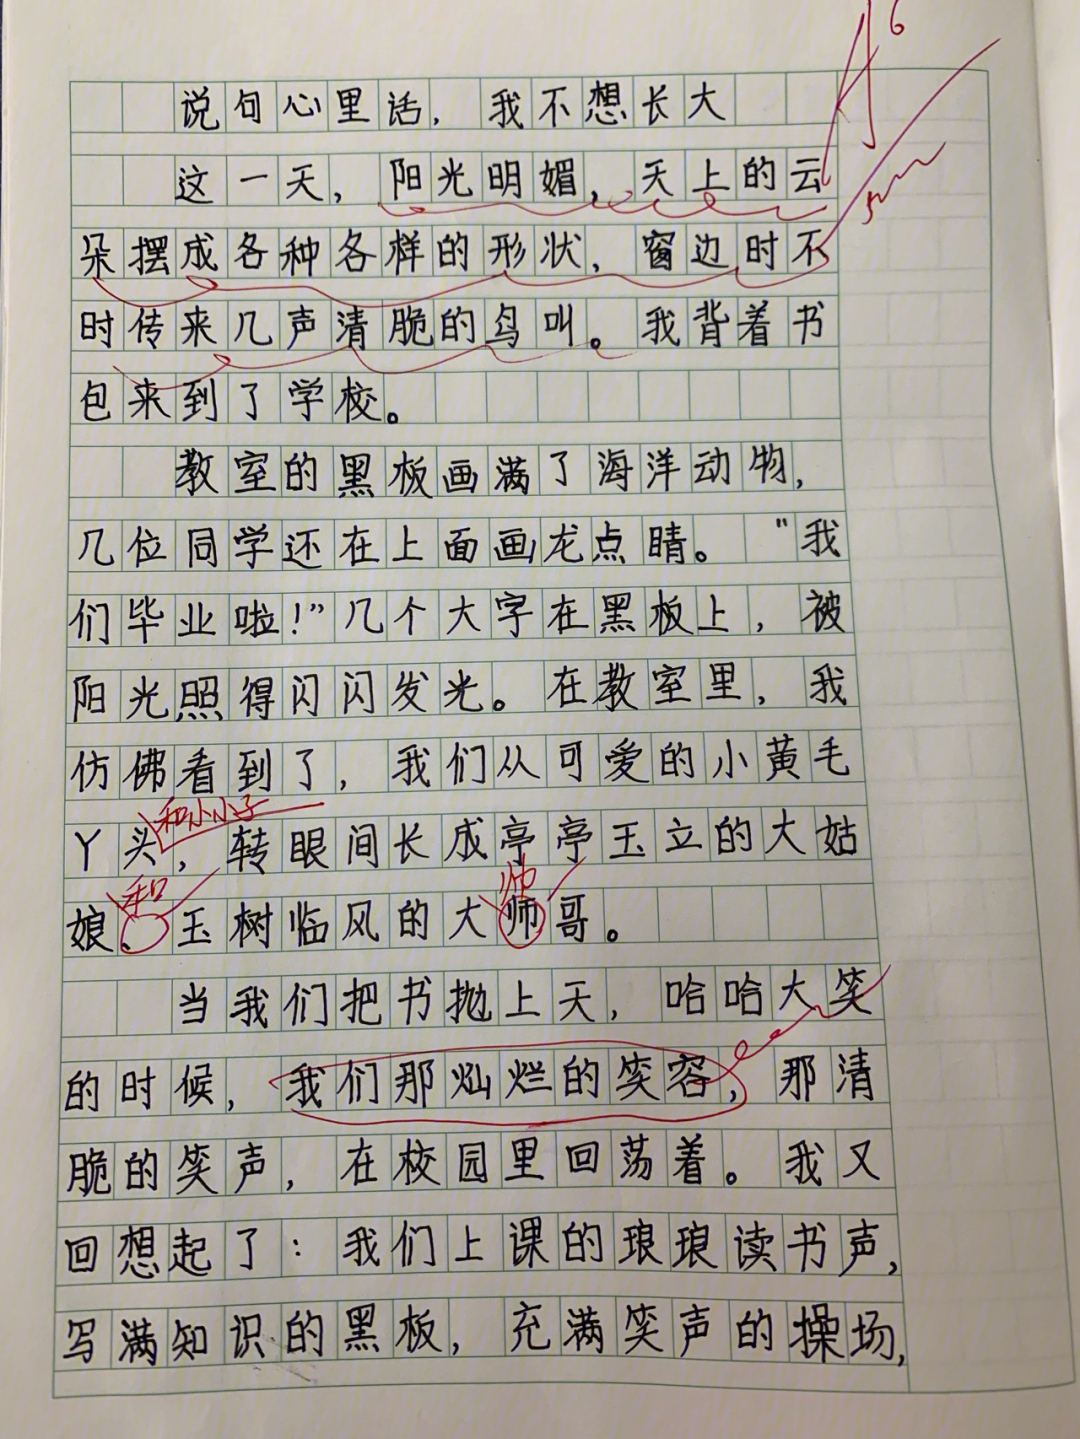 说句心里话，我不想长大
这一天，阳光明媚，天上的云
朵摆成各种各样的形状，窗边时不
时传来几声清脆的鸟叫。我背着书
包来到了学校。
教室的黑板画满了海洋动物，
几位同学还在上面画龙点睛。"我
们毕业啦！"几个大字在黑板上，被
阳光照得闪闪发光。在教室里，我
仿佛看到了，我们从可爱的小黄毛
和小小子
丫头，转眼间长成亭亭玉立的大姑
和 帅
娘、玉树临风的大师哥。
当我们把书抛上天，哈哈大笑
的时候，我们那灿烂的笑容，那清
脆的笑声，在校园里回荡着。我又
回想起了：我们上课的琅琅读书声，
写满知识的黑板，充满笑声的操场，